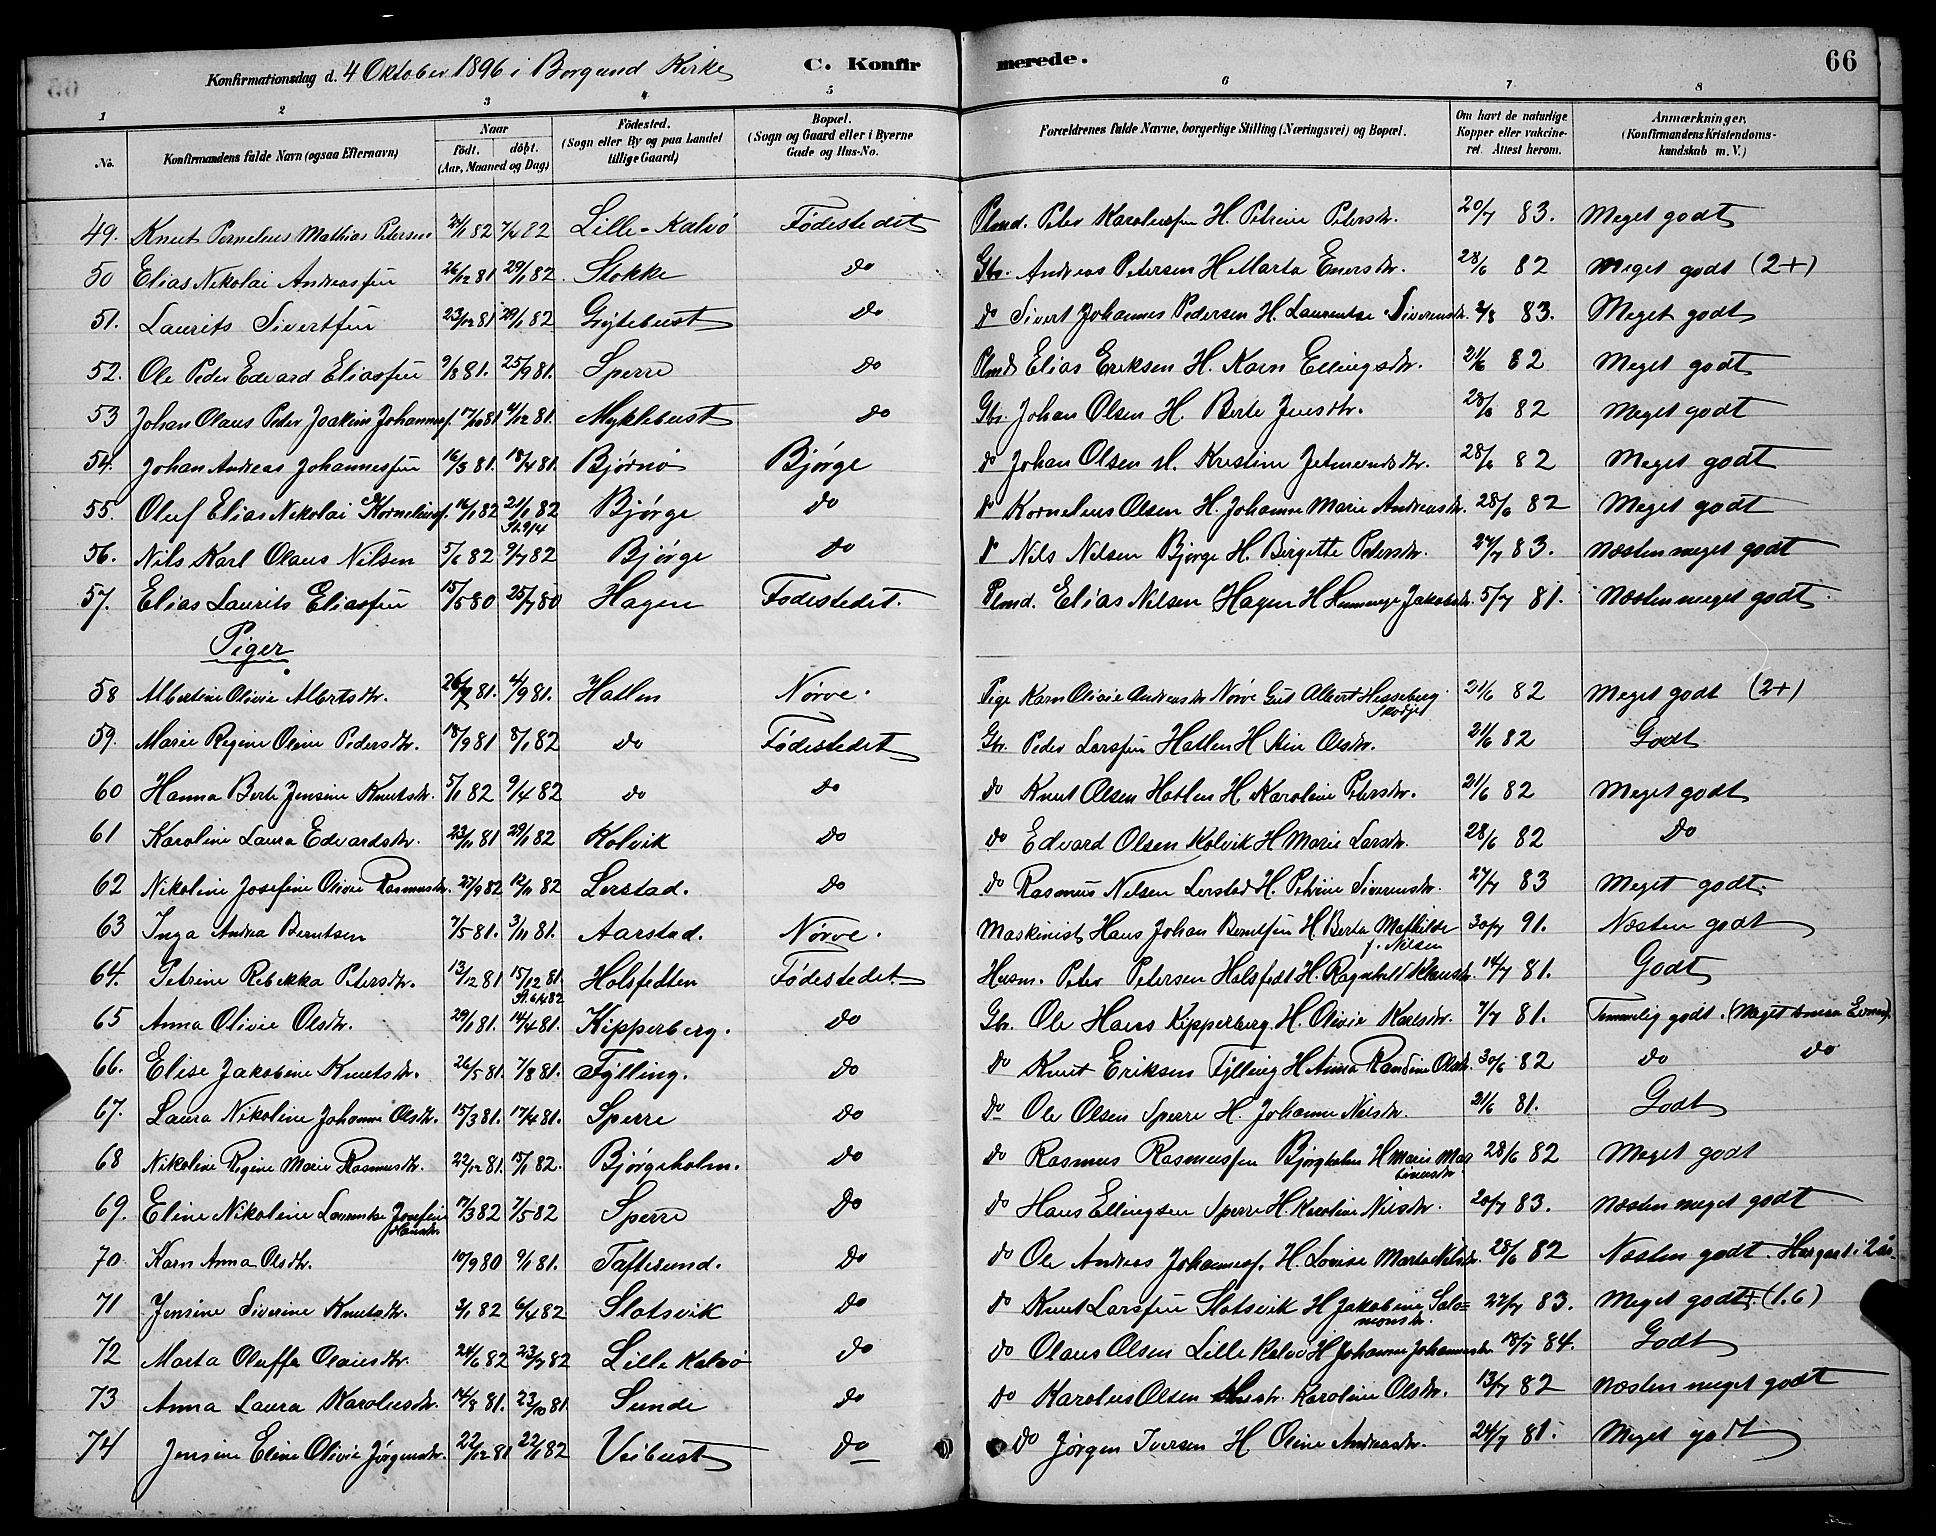 Konfirmationsdag d. 4 Oktober 1896 i Borgund Kirke C. Konfirmerede. 66
1 2 3 4 5 6 7 8
No. Konfirmandens fulde Navn (ogsaa Efternavn) Naar Født. døbt. (Aar, Maaned og Dag) Fødested. (Sogn eller By og paa Landet tillige Gaard) Bopæl. (Sogn og Gaard eller i Byerne Gade og Hus-No. Forældrenes fulde Navne, borgerlige Stilling (Næringsvei) og Bopæl. Om havt de naturlige Kopper eller vakcineret. Attest herom. Anmærkninger, (Konfirmandens Kristendomskundskab m. V.)
49. Knut Mathias Petersen 82 82 Lille-Kalvø Fødestedet Plmd. Peter Karolusfen H. Petrine Petersdr. 20/7 83. Meget godt
50 Elias Nikolai Andreasfen 26/12 81 29/1 82. Stokke do Gbr. Andreas Petersen H Marta 28/6 82 Meget godt (2+)
51. Laurits Sivertfen 23/12 81 29/1 82 Gøitebust do do Sivert Johannes Pedersen H. Laurentse 83. Meget godt
52. Ole Peder Edvard Eliasfen 9/8 81. 25/9 81. Sperre do Plmd Elias Eriksen H. Karn Ellingsdtr. 21/6 82 Meget godt
53 Johan Olaus Peter Joakim Johannesf. 17/10 81 4/12 81. Myklebust do Gbr. Johan Olsen H. Berte Jensdtr. 28/6 82 Meget godt
54. Johan Andreas Johannesfen 16/3 81. 18/4 81. Bjørnø Bjørge do Johan Olsen H. Kristine Jetmundsdtr. 28/6 82 Meget godt
55. Oluf Elias Nikolai Korneliusf. 16/1 82 21/1 82 St. 9/4 Bjørge do do Kornelius Olsen H. Johanne Marie Andreasdr. 28/6 82 Meget godt
56. Nils Karl Olaus Nilsen 5/6 82 9/7 82 Bjørge do do Nils Nilsen Bjørge H. Birgitte Petersdr. 27/7 83. Næsten meget godt
57. Elias Laurits Eliasfen 15/5 80 25/7 80 Hagen Fødestedet. Plmd. Elias Nilsen Hagen H Jakobsdr. 5/7 81. Næsten meget godt.
Piger
58 Albertine Olivie Albertsdtr. 26/7 81. 4/9 81. Hatlen Nørve. Pige Karn Olivie Andreasdr Nørve Gut Albert Hesseberg 21/6 82 Meget godt (2+)
Skodje
59. Marie Regine Oline Pedersdtr. 18/9 81 8/1 82 do Fødestedet Gbr Peder Larsfen Hatlen H Stine Olsdtr. 21/6 82 Godt
60 Hanna Berte Jensine Knutsdtr. 5/1 82 9/4 82 do do do Knut Olsen Hatlen H. Karoline Petersdtr. 21/6 82 Meget godt
61 Karoline Laura Edvardsdtr. 23/11 81 29/1 82 Kolvik do do Edvard Olsen Kolvik H Marie Larsdtr. 28/6 82 do
62 Nikoline Josefine Olivie Rasmusdtr. 27/9 82 12/11 82 Lerstad. do do Rasmus Nilsen Lerstad H. Petrine Siverinsdtr. 27/7 83 Meget godt.
63 Inga Andrea Berntsen 7/5 81. 3/11 81. Aarstad. Nørve. Maskinist Hans Johan Berntsen H Berta Mathilde 30/7 91. Næsten godt
f. Nilsen
64. Petrine Rebekka Petersdtr. 13/12 81 15/12 81. St. 6/4 82 Holsfedten Fødestedet. Husm. Peter Petersen Holsfedt H. Ragnhild 14/7 81. Godt
65 Anna Olivie Olsdtr. 29/1 81. 14/4 81. Kipperberg. do Gbr. Ole Hans Kipperberg. H. Olivie Karlsdtr. 7/7 81. Temmelig godt. (Meget smaa Evner).
66. Elise Jakobine Knutsdtr. 26/5 81. 7/8 81. Fylling. do do Knut Eriksen Fylling H Anna Randine Olsdr. 30/6 82 do do
67. Laura Nikoline Johanne Olsdtr. 15/3 81. 17/4 81. Sperre do do Ole Olsen Sperre H. Johanne Nilsdtr. 21/6 81. Godt
68 Nikoline Regine Marie Rasmusdtr. 22/12 81. 15/1 82. Bjørgeholm. do do Rasmus Rasmusfen Bjørgholm H Marie Mar 28/6 82 Meget godt
tinusdtr
69. Eline Nikoline Laurentse Josefine 17/3 82 7/5 82 Sperre do do Hans Ellingsen Sperre H. Karoline Nilsdtr. 20/7 83. Næsten meget godt
Hansdtr
70. Karn Anna Olsdtr. 10/9 80 9/1 81. Taftesund. do do Ole Andreas Johannesf. H. Lovise Marta Nilsdr. 28/6 82 Næsten godt. Har gaat i 2 aar
71 Jensine Siverine Knutsdtr. 3/1 82 6/4 82 Slotsvik do do Knut Larsfen Slotsvik H Jakobine Salo= 27/7 83. Meget godt. (1.6)
monsdr.
72 Marta Oluffa Olausdtr. 24/6 82 23/7 82 Lille Kalvø do do Olaus Olsen Lille Kalvø H Johanne Johannesdr. 18/7 84. Godt
73 Anna Laura Karolusdtr. 14/8 81. 23/10 81 Sunde do do Karolus Olsen Hustr. Karoline Olsdtr. 13/7 82 Næsten meget godt
74 Jensine Eline Olivie Jørgensdtr. 22/12 81 22/1 82 Veibust do do Jørgen Iversen H Oline Andreasdtr. 24/7 81. Meget godt